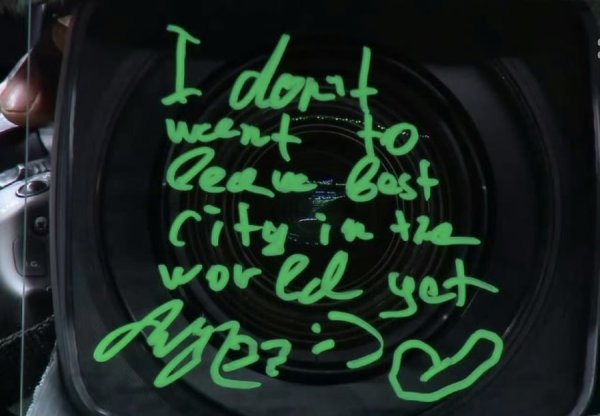 I don't
want to
leave best
city in the
world yet
:)